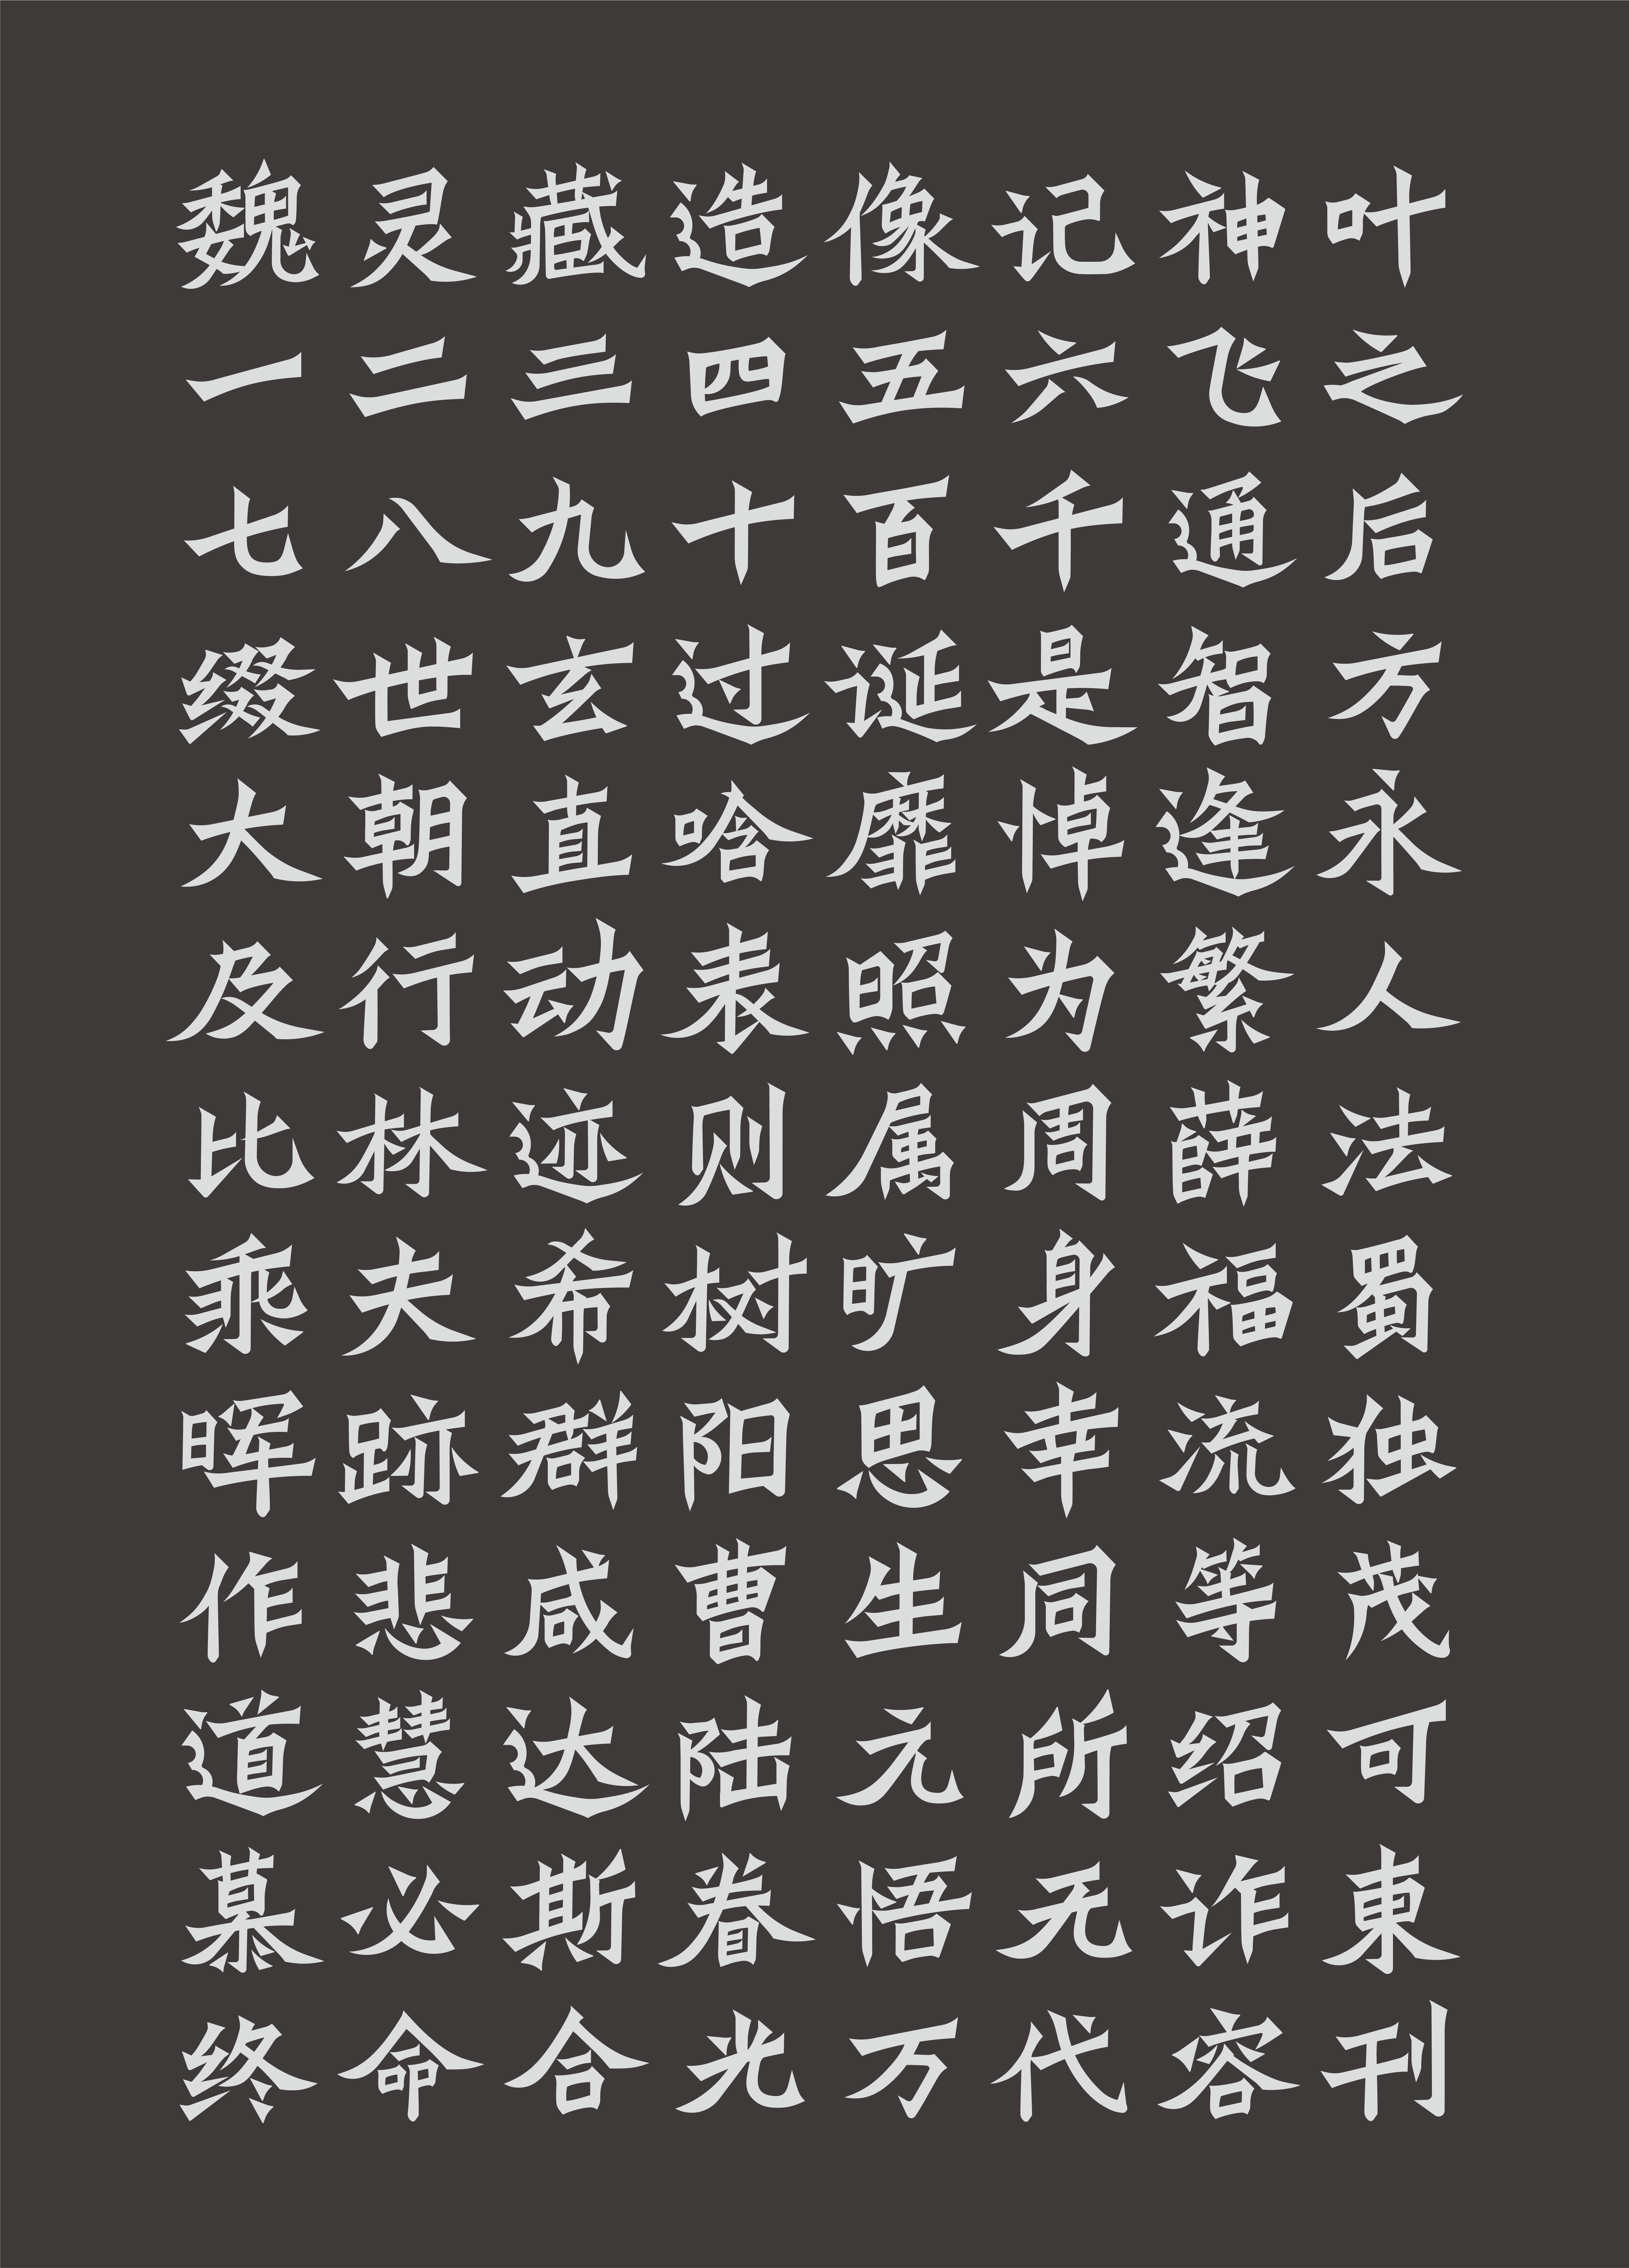 魏灵藏造像记神叶
一二三四五六飞之
七八九十百千通后
缀世玄过诞是智方
大朝直哈靡悼逢永
及行动表照为繁人
比林迹则属周薛法
乘夫希树旷身福蜀
晖跡群阳思幸流独
作悲咸曹生同等茂
道慧达陆元所绍可
慕必斯着悟无诈東
终命合光万代容刊